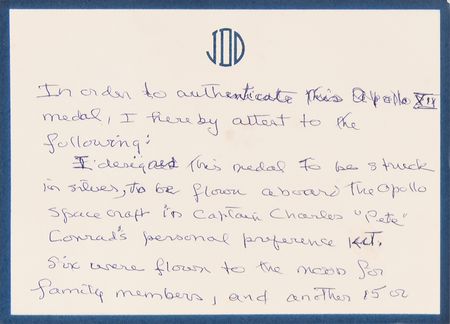 JOD
In order to authenticate this Apollo XII
medal, I hereby attest to the
following:
I designed this medal to be struck
in silver, to be flown aboard the Apollo
spacecraft in Captain Charles "Pete"
Conrad's personal preference kit.
Six were flown to the moon for
family members, and another 15 or